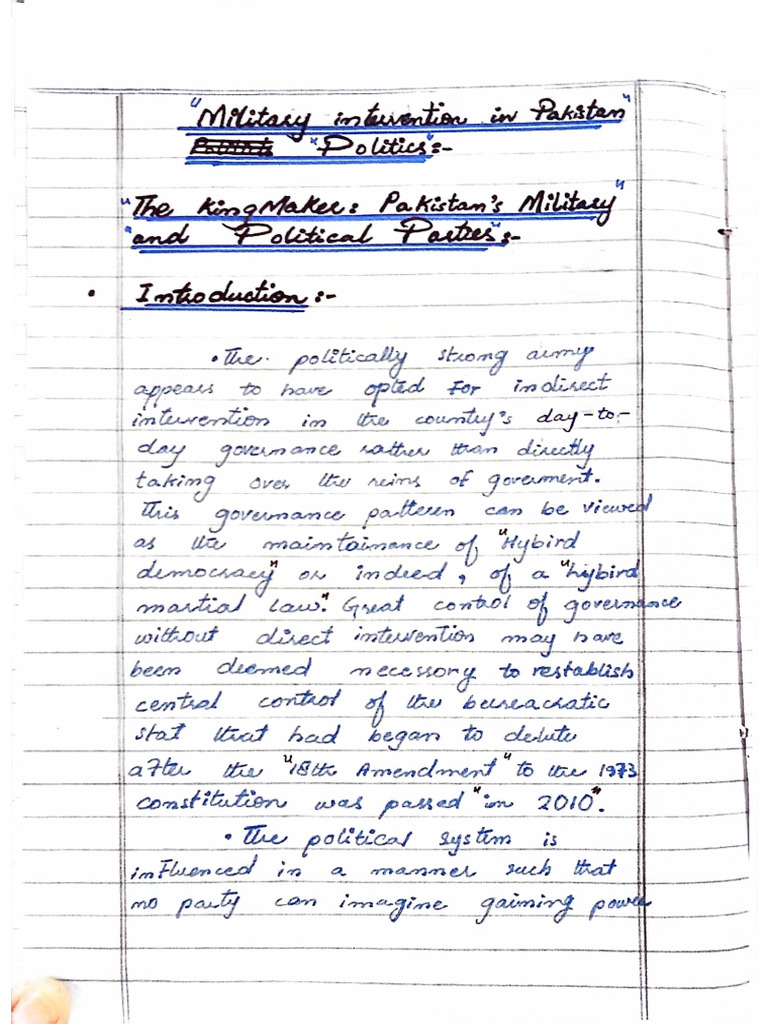 "Military intervention in Pakistan"
"Politics":-
"The KingMaker: Pakistan's Military"
"and Political Parties":-
• Introduction:-
• The politically strong army
appears to have opted for indirect
intervention in the country's day-to-
day governance rather than directly
taking over the reins of goverment.
This governance pattern can be viewed
as the maintainance of "Hybird
democracy" or indeed, of a "hybird
martial law". Great control of governance
without direct intervention may have
been deemed necessary to restablish
central control of the bureacratic
stat that had began to delute
after the "18th Amendment" to the 1973
constitution was passed "in 2010".
• The political system is
influenced in a manner such that
no party can imagine gaining power